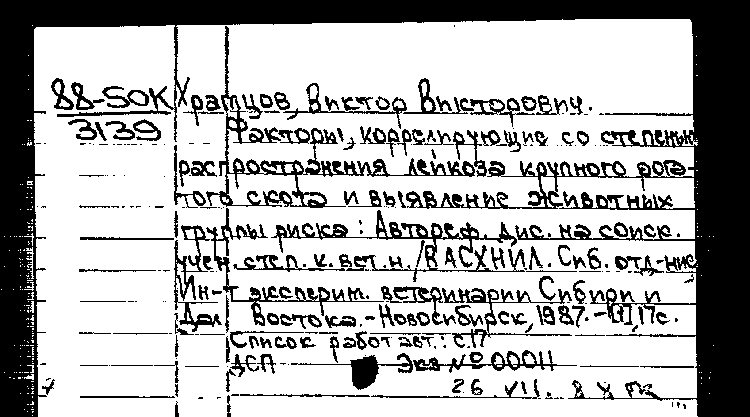 88-50К Храмцов, Виктор Викторович.
3139 Факторы, коррелирующие со степенью
распространения лейкоза крупного рога-
того скота и выявление животных
группы риска : Автореф. дис. на соиск.
учен. степ. к. вет. н. / ВАСХНИЛ. Сиб. отд-ние
Ин-т эксперим. ветеринарии Сибири и
Дал. Востока. - Новосибирск, 1987. - [1], 17с.
Список работ авт.: с.17
ДСП Экз № 00011
26. VII. 8